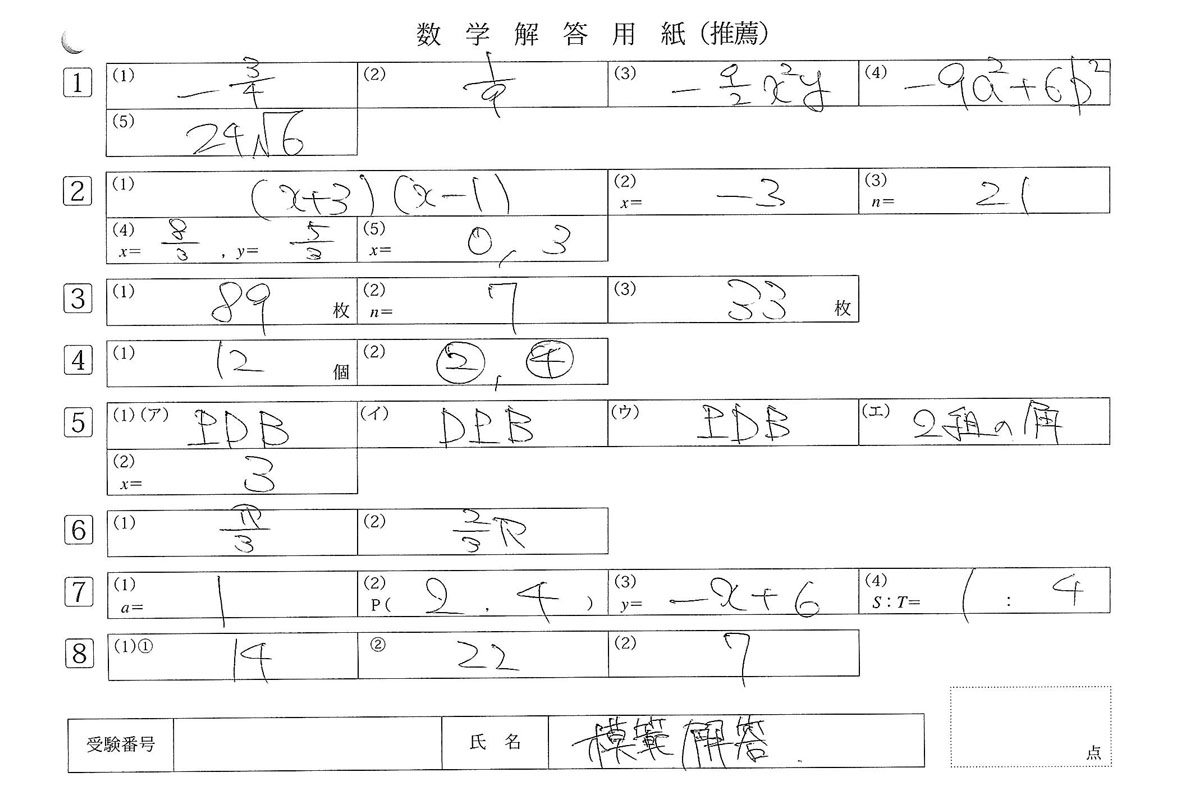 数学解答用紙（推薦）
1 (1) −3/4 (2) 1/9 (3) −9/2 x²y (4) −9a²+6b²
(5) 24√6
2 (1) (x+3)(x−1) (2) x= −3 (3) n= 21
(4) x= 8/3 , y= 5/3 (5) x= 0, 3
3 (1) 89 枚 (2) n= 7 (3) 33 枚
4 (1) 12 個 (2) ②, ④
5 (1)(ア) PDB (イ) DPB (ウ) PDB (エ) 2組の角
(2) x= 3
6 (1) π/3 (2) 2/3 π
7 (1) a= 1 (2) P( 2 , 4 ) (3) y= −x+6 (4) S:T= 1 : 4
8 (1)① 14 ② 22 (2) 7
受験番号 氏名 模範解答.
点